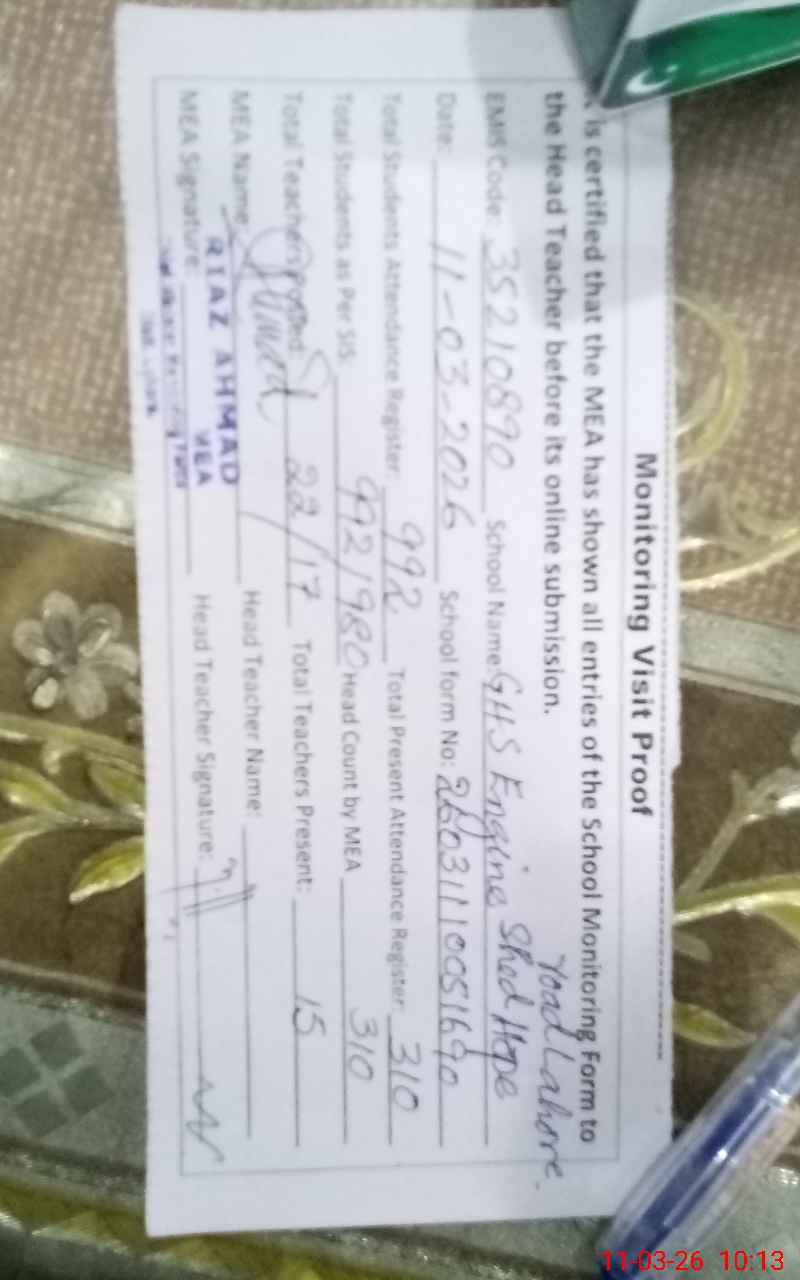 Monitoring Visit Proof
is certified that the MEA has shown all entries of the School Monitoring Form to
the Head Teacher before its online submission.
EMIS Code: 35210890 School Name: GHS Engine Shed Hope road Lahore.
Date: 11-03-2026 School form No:
Total Students Attendance Register: 992 Total Present Attendance Register: 310
Total Students as Per SIS: 992/980 Head Count by MEA 310
Total Teachers 22/17 Total Teachers Present: 15
MEA Name: Head Teacher Name:
RIAZ AHMAD
MEA
MEA Signature: Head Teacher Signature:
11-03-26 10:13